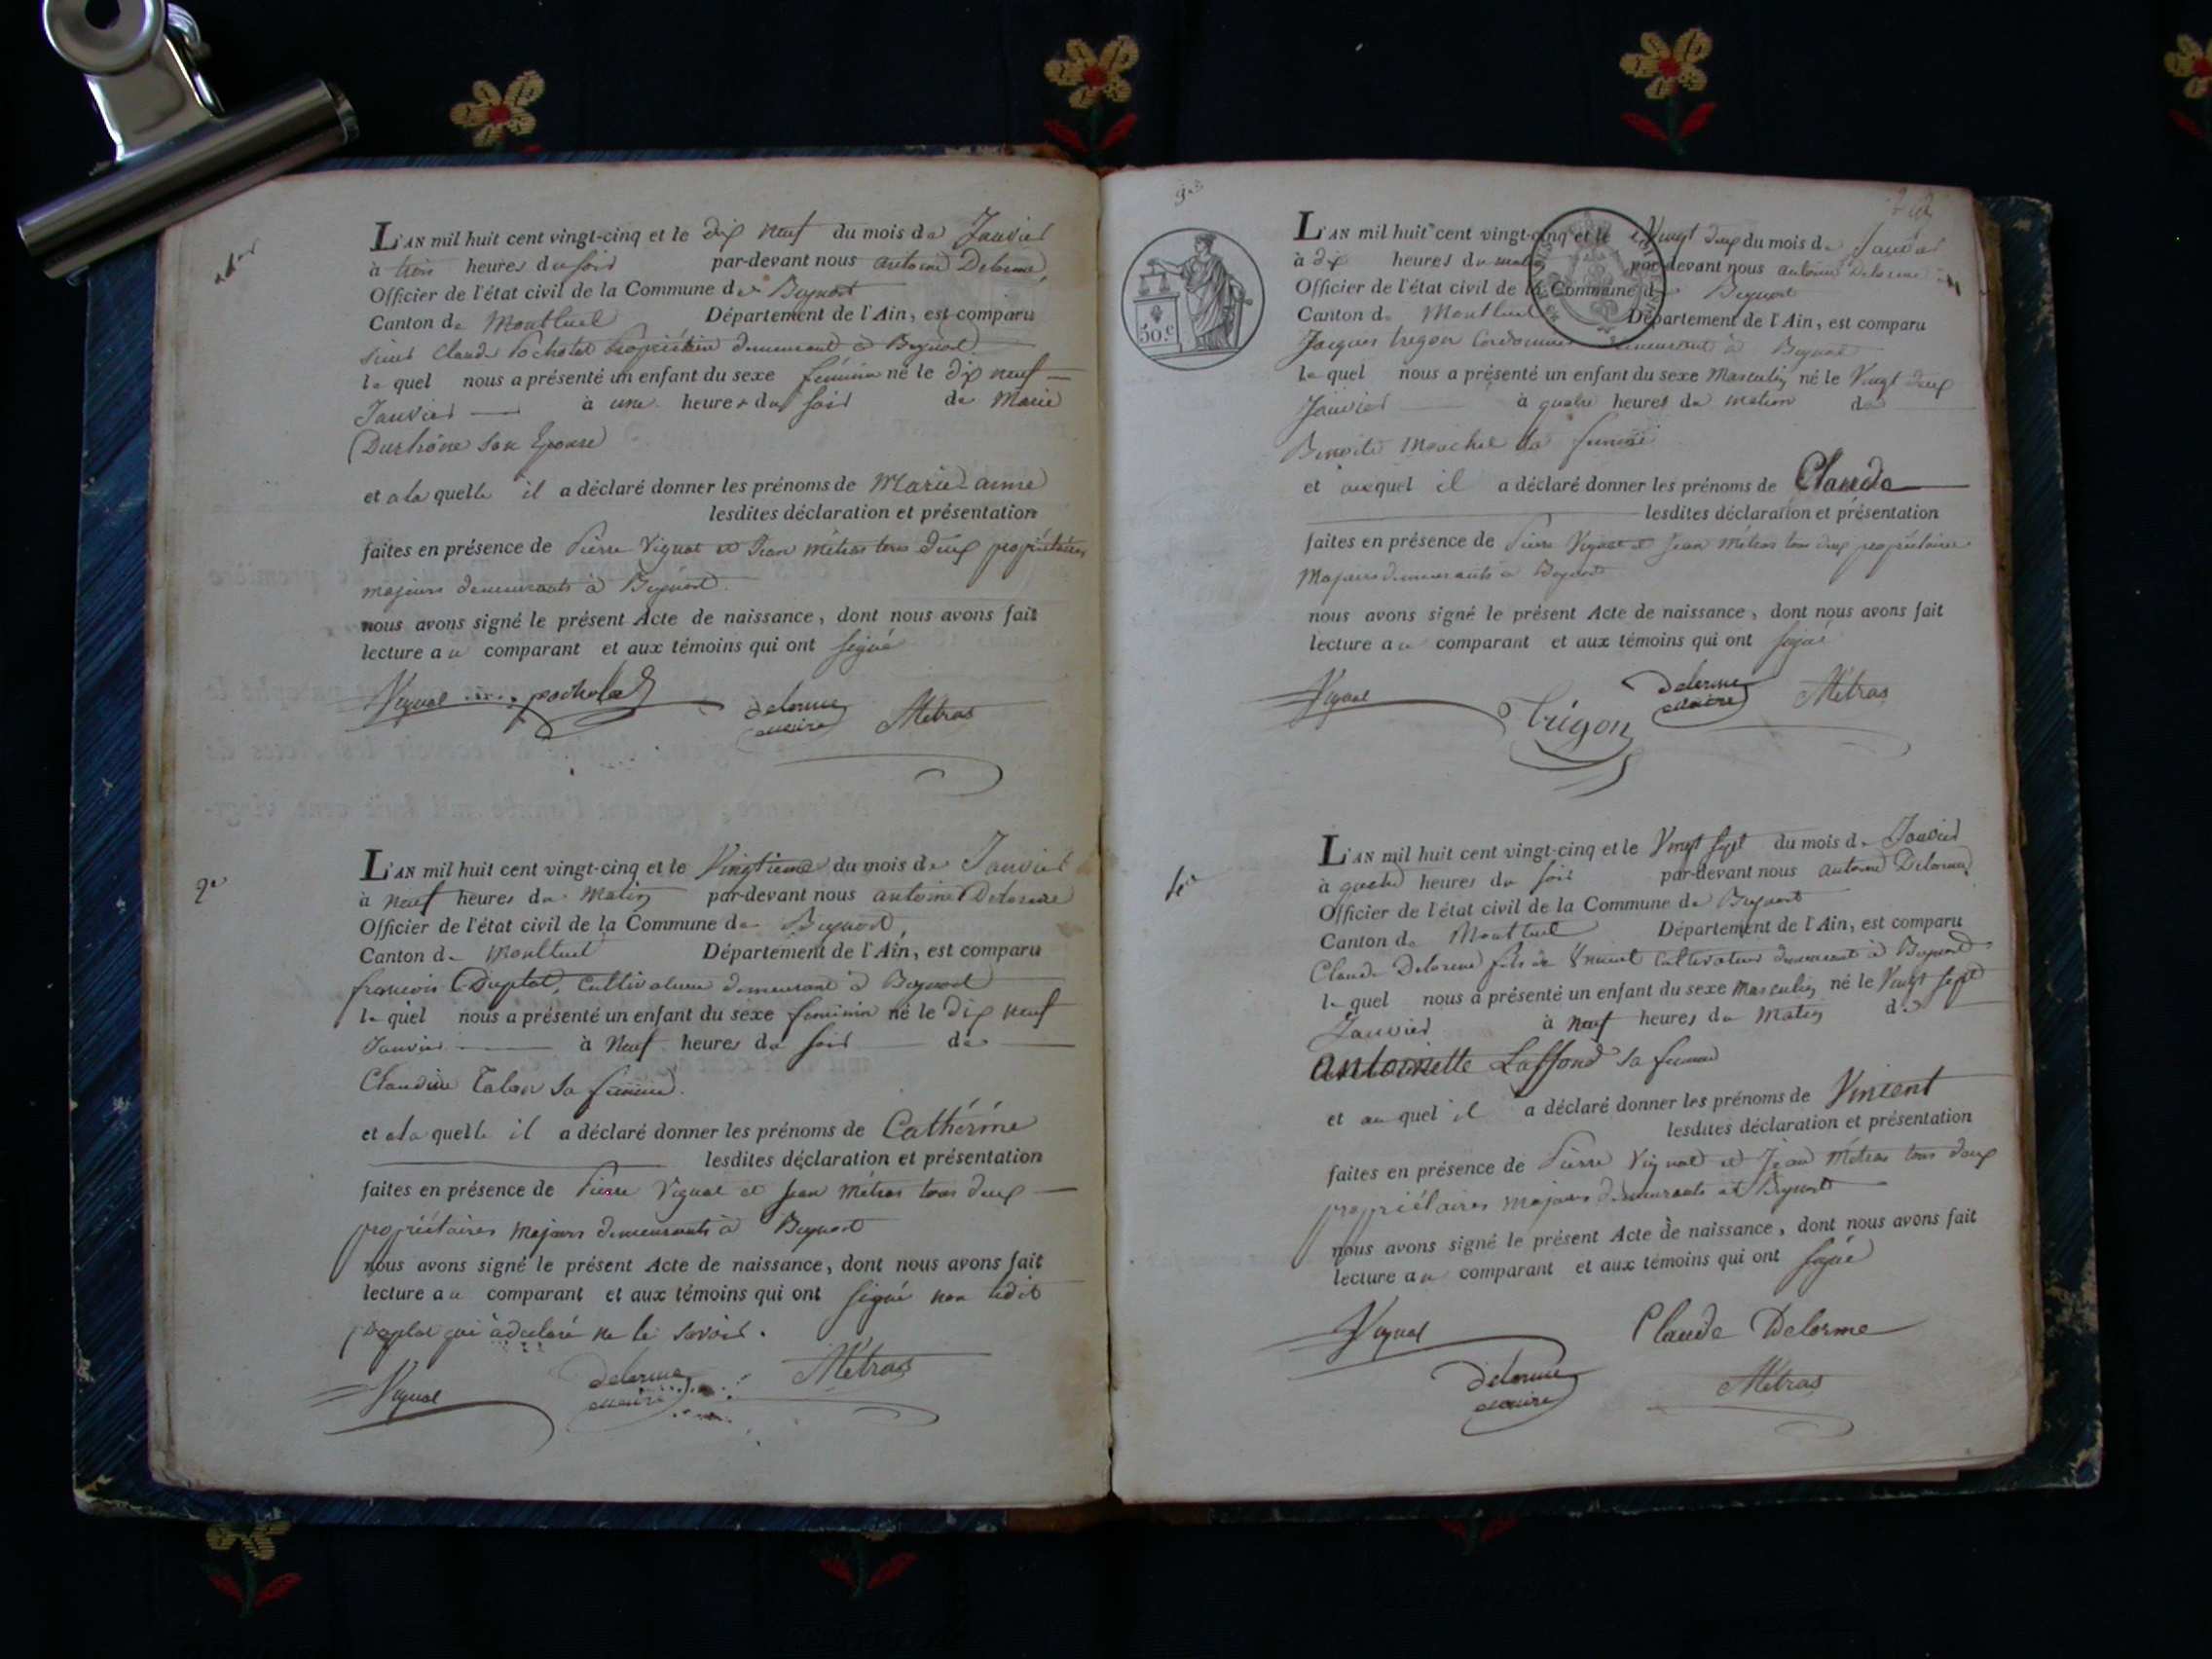 1er
L'AN mil huit cent vingt-cinq et le dix neuf du mois de Janvier
à trois heures du soir par-devant nous antoine Delorme,
Officier de l'état civil de la Commune de Beynost
Canton de Montluel Département de l'Ain, est comparu
sieur Claude Pochotat propriétaire demeurant à Beynost
lequel nous a présenté un enfant du sexe féminin né le dix neuf
Janvier à une heure du soir de Marie
Durhône son Epouse
et a la quelle il a déclaré donner les prénoms de Marie-aimé
lesdites déclaration et présentation
faites en présence de Pierre Vignat et Jean métras tous deux propriétaires
majeurs demeurants à Beynost
nous avons signé le présent Acte de naissance, dont nous avons fait
lecture au comparant et aux témoins qui ont signé
Vignat delorme Métras
maire
2e
L'AN mil huit cent vingt-cinq et le Vingtieme du mois de Janvier
à neuf heures du Matin par-devant nous antoine Delorme
Officier de l'état civil de la Commune de Beynost,
Canton de Montluel Département de l'Ain, est comparu
françois Duplat, Cultivateur demeurant à Beynost
lequel nous a présenté un enfant du sexe feminin né le dix neuf
Janvier à Neuf heures du soir de
Claudine Talon sa femme.
et a la quelle il a déclaré donner les prénoms de Cathérine
lesdites déclaration et présentation
faites en présence de Pierre Vignat et Jean métras tous deux
propriétaires majeurs demeurants à Beynost
nous avons signé le présent Acte de naissance, dont nous avons fait
lecture au comparant et aux témoins qui ont signé non ledit
Duplat qui à déclaré ne le savoir.
Vignat delorme Métras
maire
3e
50.c
L'AN mil huit cent vingt-cinq et le Vingt deux du mois de Janvier
à dix heures du matin par-devant nous antoine Delorme
Officier de l'état civil de la Commune de Beynost
Canton de Montluel Département de l'Ain, est comparu
Jacques trigon Cordonnier demeurant à Beynost
lequel nous a présenté un enfant du sexe Masculin né le Vingt deux
Janvier à quatre heures du matin de
Benoite Meachel sa femme
et auquel il a déclaré donner les prénoms de Claude
lesdites déclaration et présentation
faites en présence de Pierre Vignat et Jean Métras tous deux propriétaires
Majeurs demeurants à Beynost
nous avons signé le présent Acte de naissance, dont nous avons fait
lecture au comparant et aux témoins qui ont signé
Vignat Trigon delorme Métras
maire
4e
L'AN mil huit cent vingt-cinq et le Vingt sept du mois de Janvier
à quatre heures du soir par-devant nous antoine Delorme
Officier de l'état civil de la Commune de Beynost
Canton de Montluel Département de l'Ain, est comparu
Claude Delorme fils de Cultivateur demeurant à Beynost
lequel nous a présenté un enfant du sexe masculin né le Vingt sept
Janvier à neuf heures du Matin de
antoinette Laffond sa femme
et au quel il a déclaré donner les prénoms de Vincent
lesdites déclaration et présentation
faites en présence de Pierre Vignat et Jean Métras tous deux
propriétaires majeurs demeurants à Beynost
nous avons signé le présent Acte de naissance, dont nous avons fait
lecture au comparant et aux témoins qui ont signé
Vignat Claude Delorme
delorme Métras
maire